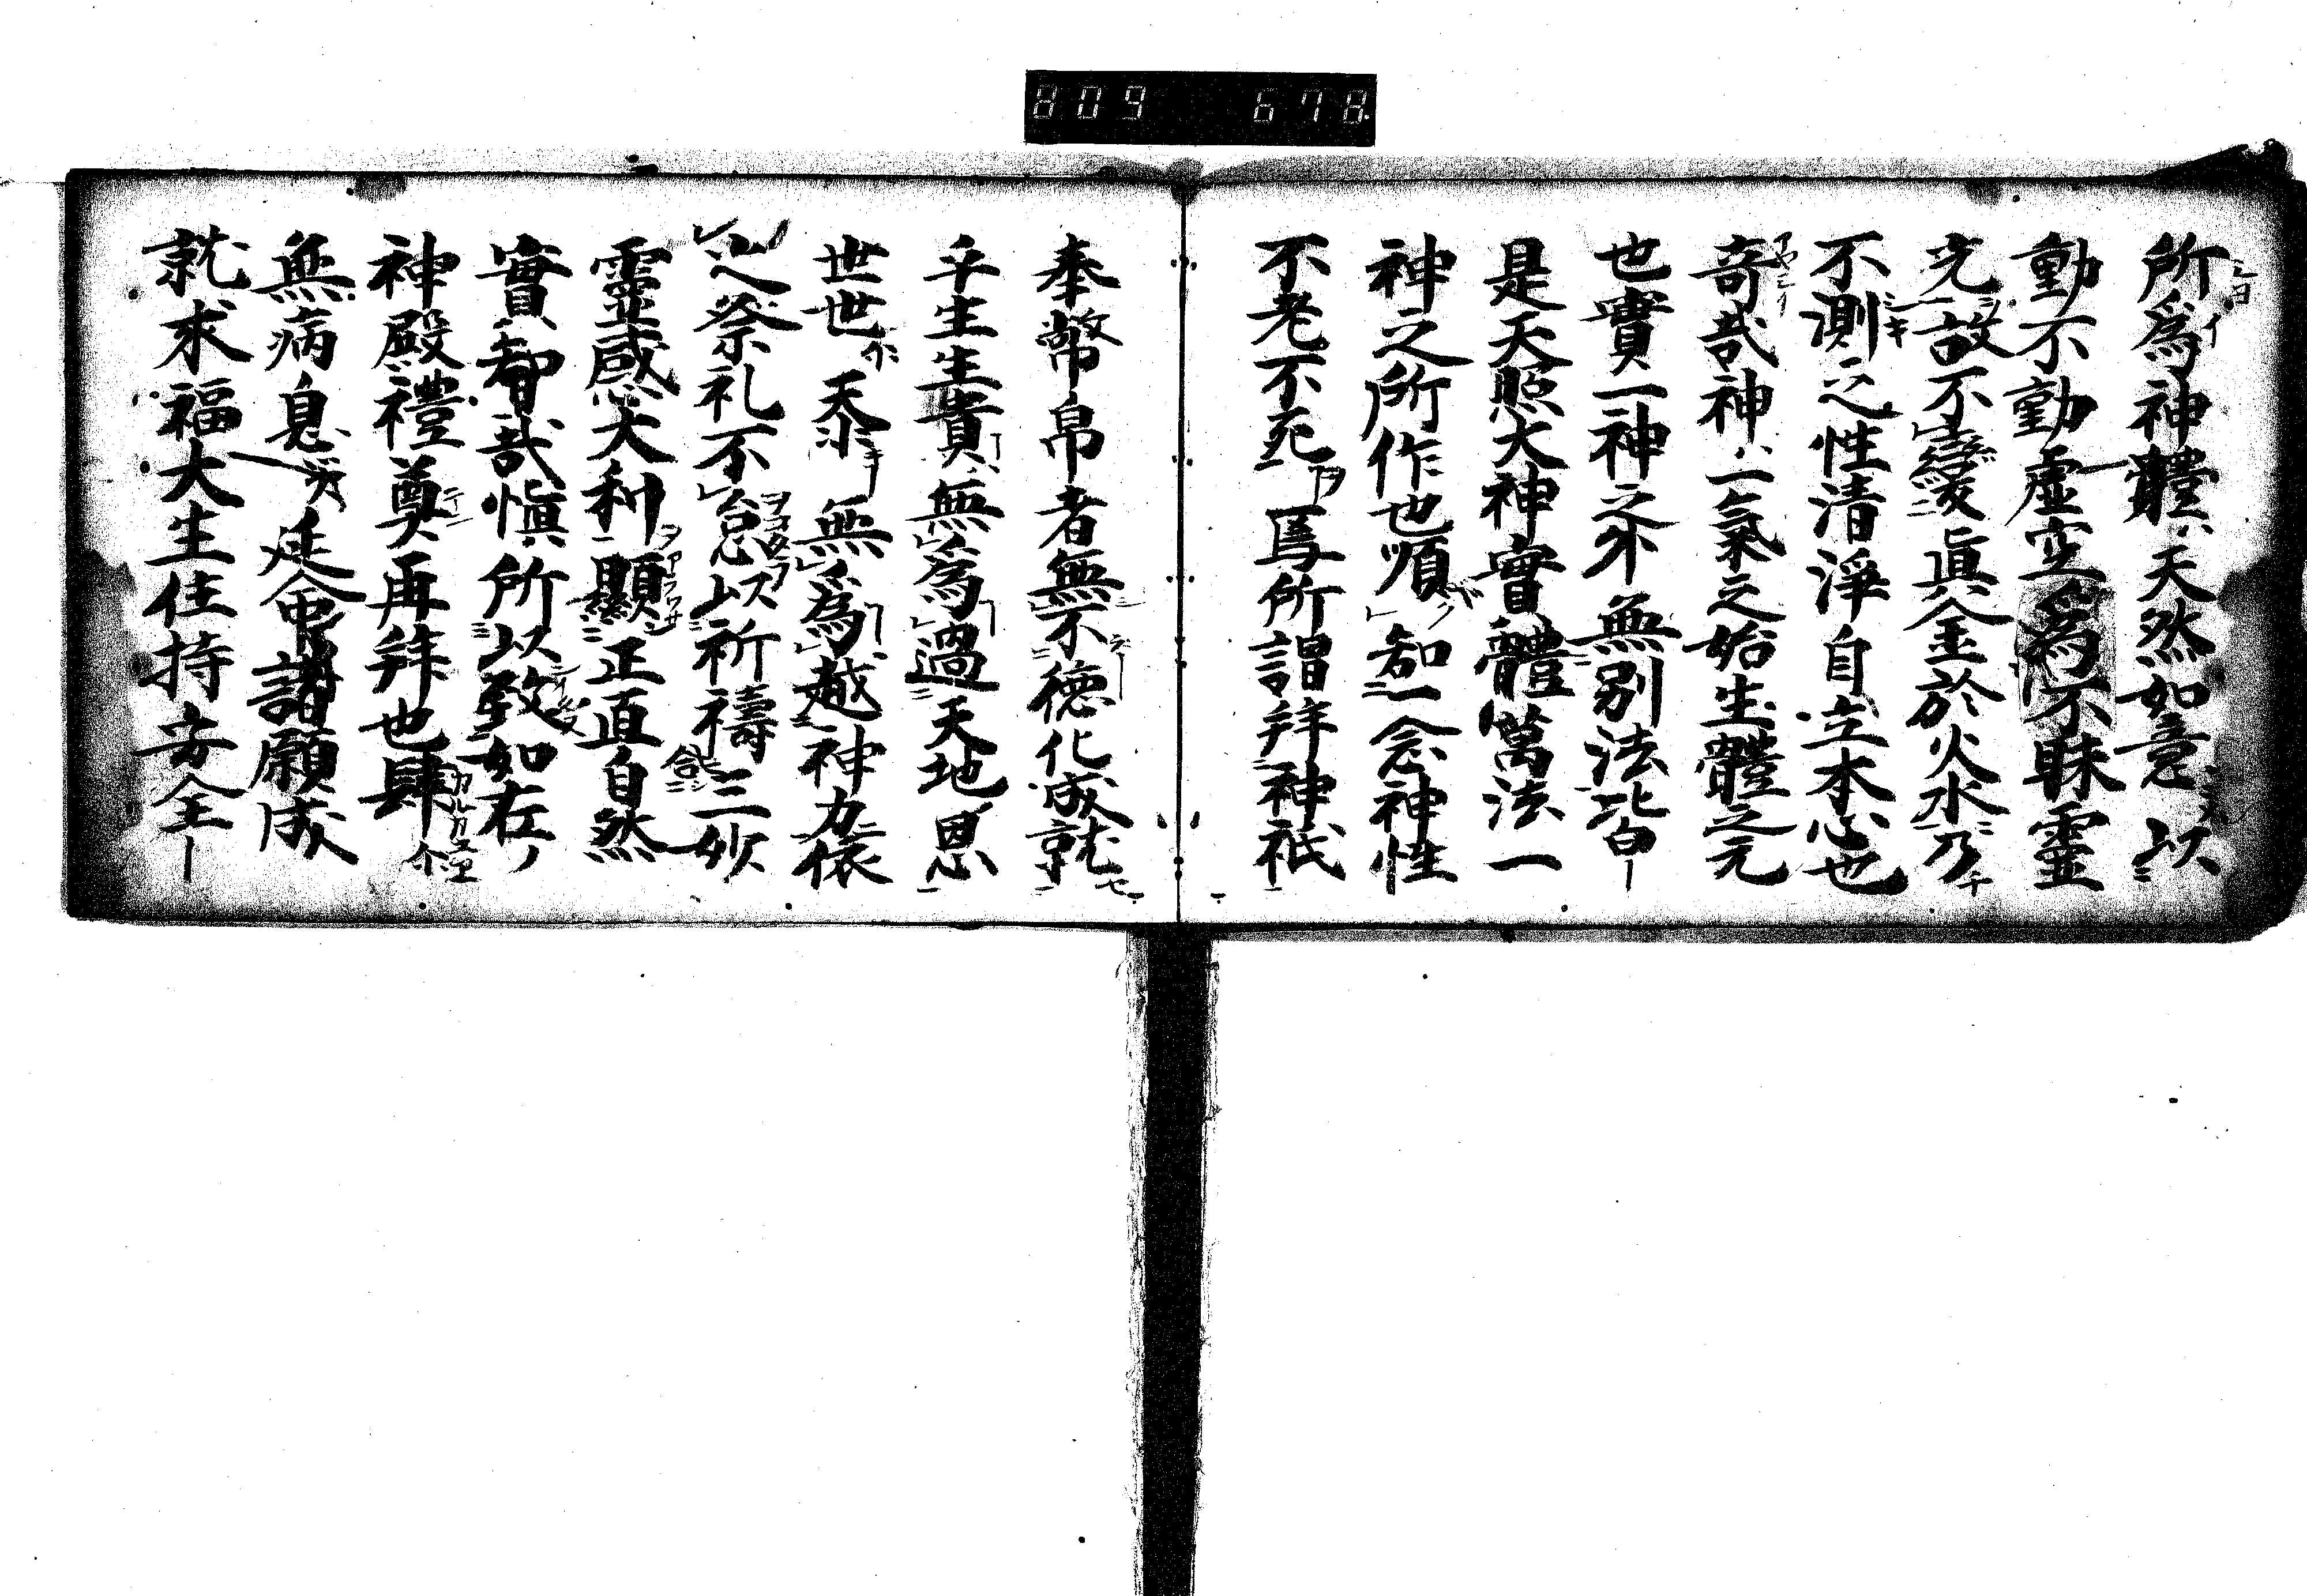 809 678
所爲神體天然如意以
動不動虚空爲不昧靈
光故不變眞金於火水乃
不測之性清淨自立本心也
奇哉神一氣之始生體之元
也實一神之外無別法皆
是天照大神實體萬法一
神之所作也順知一念神性
不老不死焉所謂拜神祇
奉幣帛者無不德化成就
乎生生貴無爲過天地恩
世世忝無爲越神力依
之祭礼不怠以祈禱三妙
靈感大利顯正直自然
實智哉愼所以致如在
神殿禮奠再拜也肆
無病息災延命諸願成
就求福大生住持安全